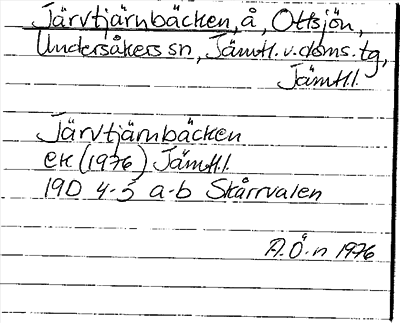 Järvtjärnbäcken, å, Ottsjön,
Undersåkers sn, Jämtl. v. doms. tg,
Jämtl.l.
Järvtjärnbäcken
ek (1976) Jämtl.l.
19D 4-5 a-b Skårrvalen
A.Ö-n 1976